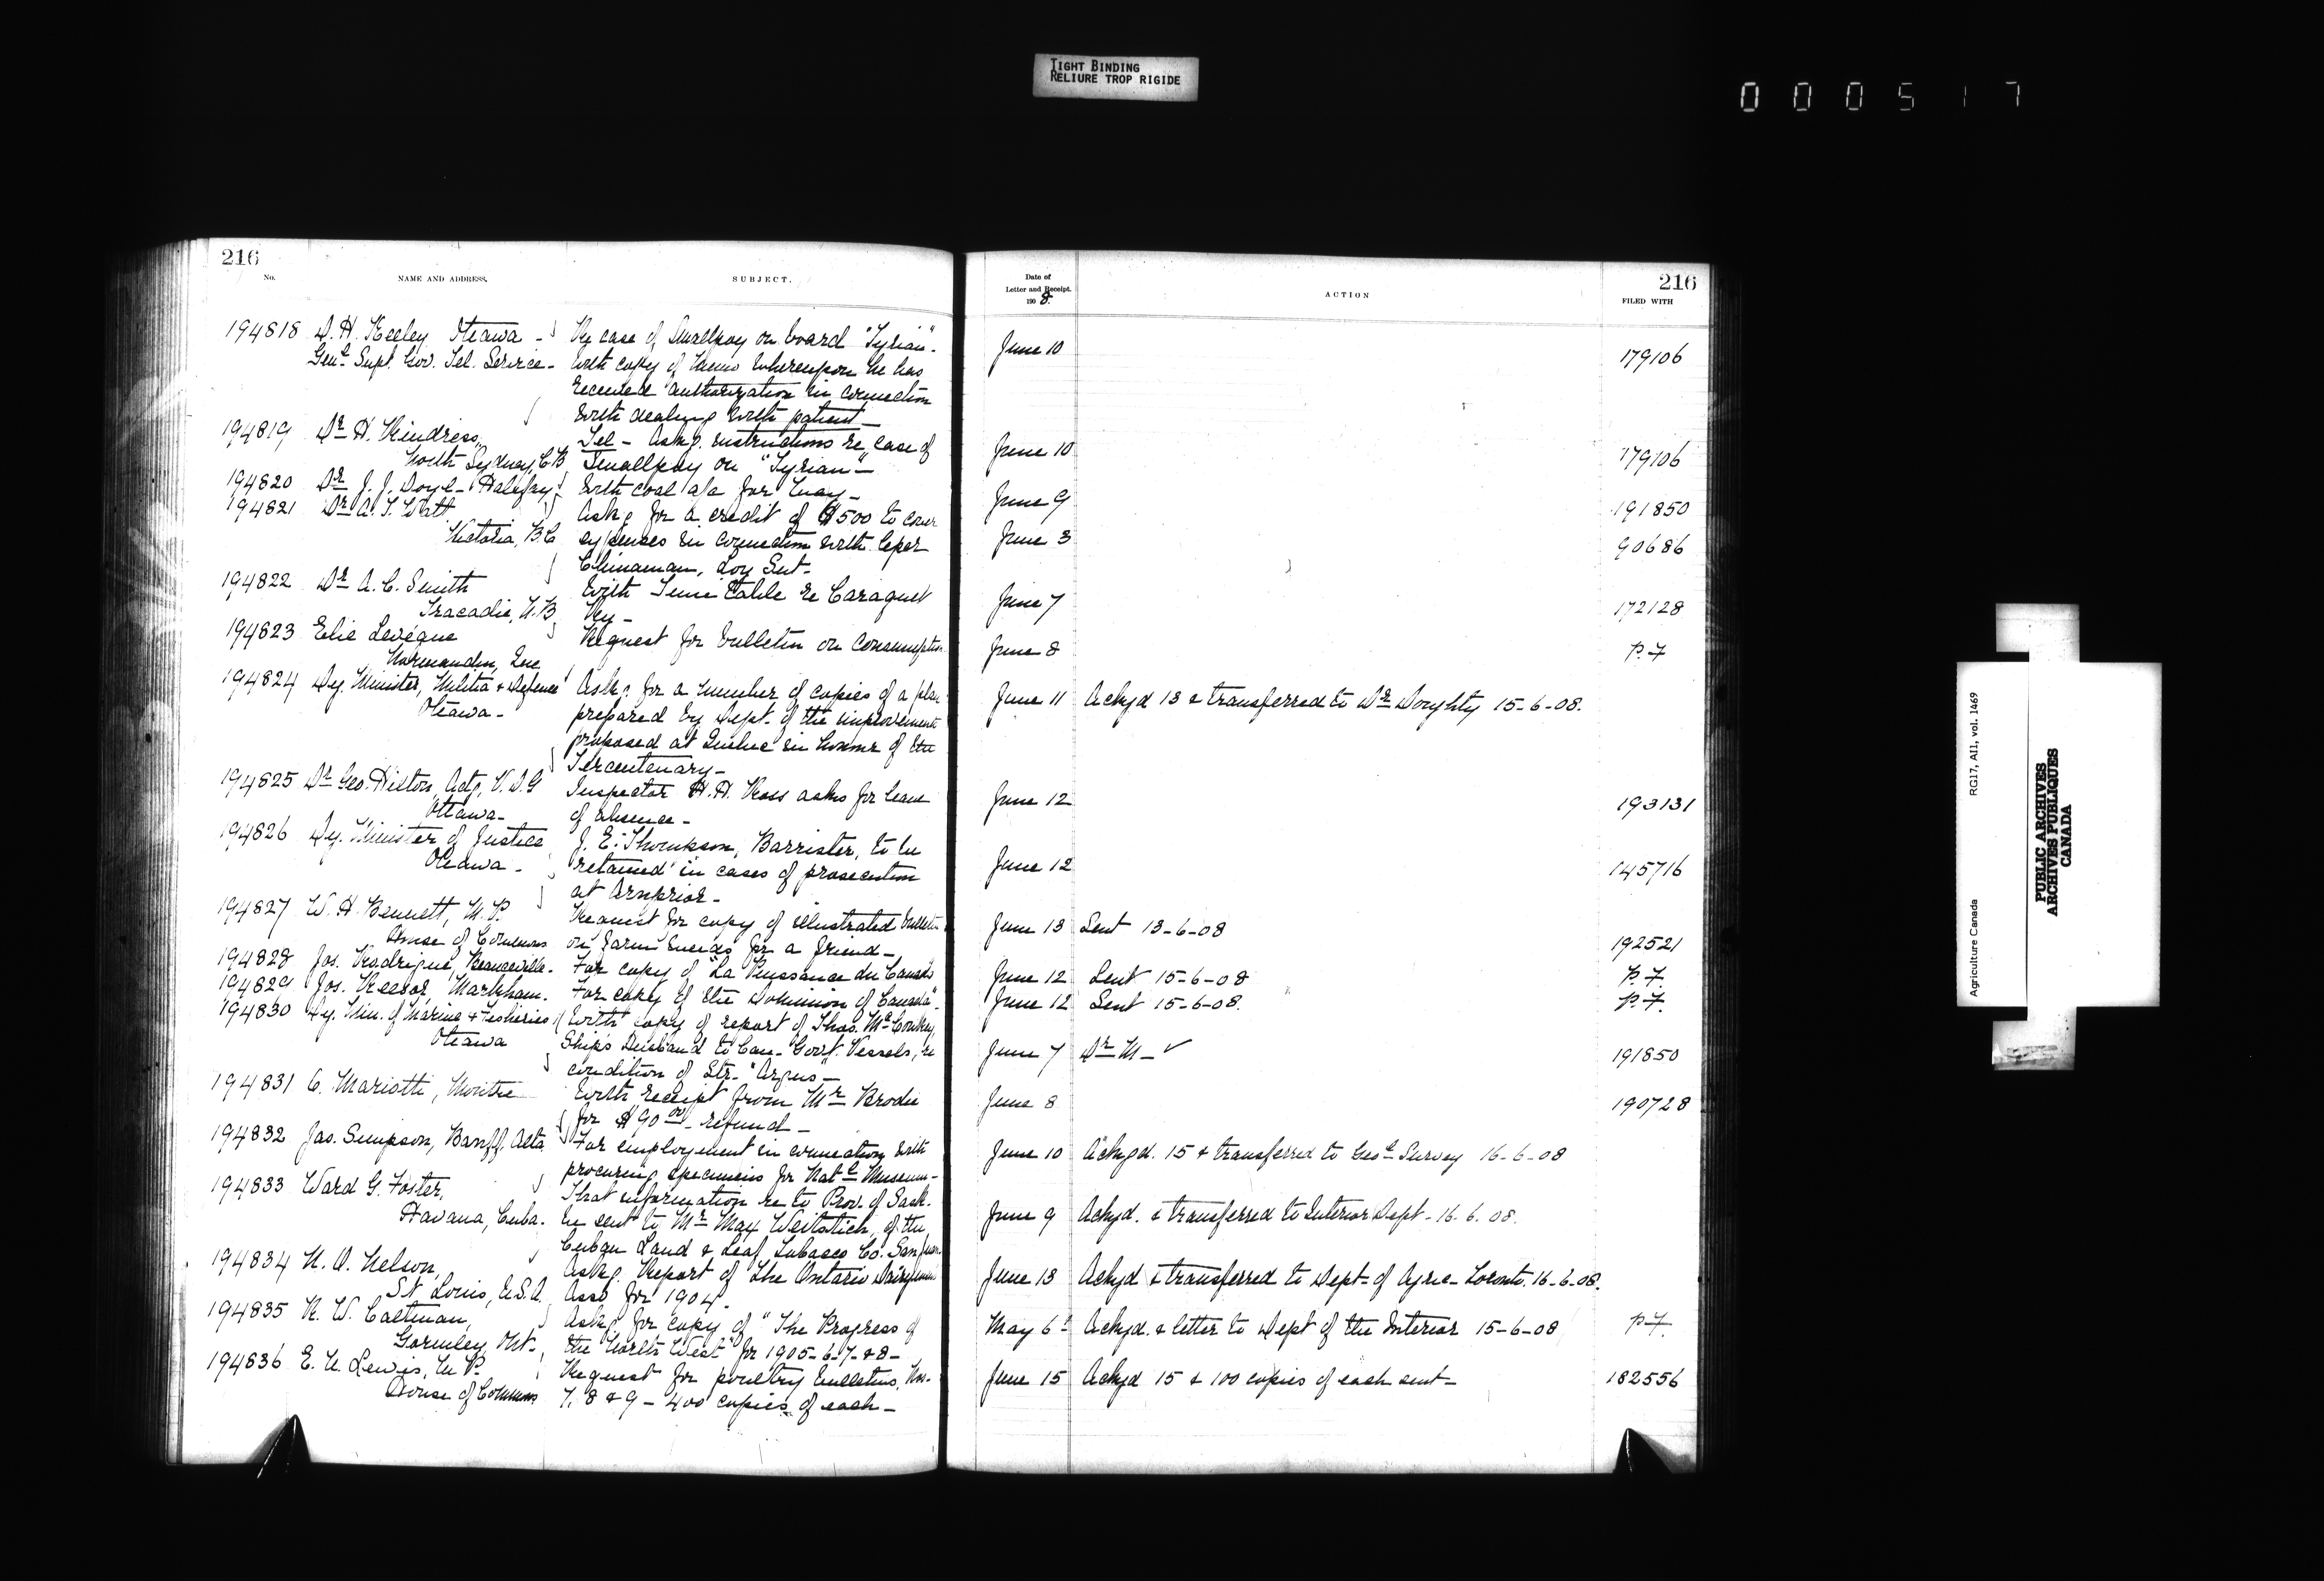 TIGHT BINDING
RELIURE TROP RIGIDE
000517
216
No.
NAME AND ADDRESS.
SUBJECT.
194818 D. H. Keeley Ottawa - Re case of Smallpox on board "Tyrian".
Genl. Supt. Gov. Tel. Service - With copy of memo whereupon he has
received authorization in connection
with dealing with patient -
194819 Dr H. Kendress, Tel - Askg. instructions re case of
North Sydney, C.B. Smallpox on "Tyrian" -
194820 Dr J. J. Doyle - Halifax With coal a/c for May -
194821 Dr A. T. Watt Askg for a credit of $500 to cover
Victoria, B.C expenses in connection with leper
Chinaman,
194822 Dr A. C. Smith With Time table re Caraquet
Tracadie, N.B Ry -
194823 Elie Levéque Request for bulletin on Consumption
Normandin, Que
194824 Dy. Minister, Militia & Defence Askg. for a number of copies of a plan
Ottawa - prepared by Dept. of the improvements
proposed at Quebec in honour of the
Tercentenary -
194825 Dr Geo. Hilton, Actg. V.D.G Inspector H. H. Ross asks for leave
Ottawa - of absence -
194826 Dy. Minister of Justice J. E. Thompson, Barrister, to be
Ottawa - retained in cases of prosecution
at Arnprior -
194827 W. H. Bennett, M.P. Request for copy of illustrated bulletin
House of Commons on Farm Weeds for a friend -
194828 Jos. Rodrigue, Beauceville - For copy of "La Puissance du Canada"
194829 Jos. Reesor, Markham. For copy of the Dominion of Canada".
194830 Dy. Min. of Marine & Fisheries With copy of report of Thos. McConkey,
Ottawa Ship's Husband to Can. Govt. Vessels, re
condition of Str. "Argus" -
194831 C. Mariotti, With receipt from Mr Brodie
for $90 00 - refund -
194832 Jas. Simpson, Banff, Alta For employment in connection with
procuring specimens for Natl Museum -
194833 Ward G. Foster, That information re to Prov. of Sask.
Havana, Cuba. be sent to Mr Max of the
Cuban Land & Leaf Tobacco Co. San Juan
194834 N. O. Nelson, Askg. Report of the Ontario Dairymen
St Louis, U.S.A. Asso for 1904.
194835 R. W. Caltman, Askg for copy of "The Progress of
Gormley, Ont -, the North West" for 1905-6-7 & 8 -
194836 E. N. Lewis, M.P. Request for poultry bulletins, Nos.
House of Commons 7, 8 & 9 - 400 copies of each -
Date of
Letter and Receipt.
1908.
ACTION
216
FILED WITH
June 10 179106
June 10 179106
June 9 191850
June 3 90686
June 7 172128
June 8 P.7
June 11 Ackgd 13 & transferred to Dr Doughty 15-6-08.
June 12 193131
June 12 145716
June 13 Sent 13-6-08 192521
June 12 Sent 15-6-08 P.7.
June 12 Sent 15-6-08. P.7.
June 7 Dr M - ✓ 191850
June 8 190728
June 10 Ackgd. 15 & transferred to Geol Survey 16-6-08
June 9 Ackgd. & transferred to Interior Dept - 16.6.08.
June 13 Ackgd & transferred to Dept. of Agric - Toronto. 16-6-08.
May 6 Ackgd. & letter to Dept of the Interior 15-6-08 P.7.
June 15 Ackgd 15 & 100 copies of each sent - 182556
Agriculture Canada RG17, AI1, vol. 1469
PUBLIC ARCHIVES
ARCHIVES PUBLIQUES
CANADA